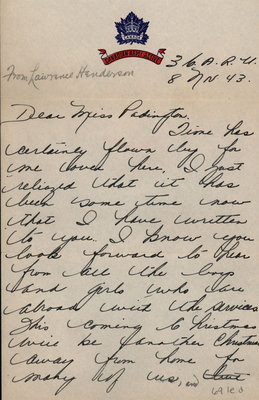 CANADA
3 C.A.R.U.
From Lawrence Henderson
8 N 43.
Dear Miss Padington.
Time has
certainly flown by for
me over here, I just
relized that it has
been some time now
that I have written
to you. I know you
look forward to hear
from all the boys
and girls who are
abroad with the services
This coming Christmas
will be another Christmas
away from home for
many of us, and